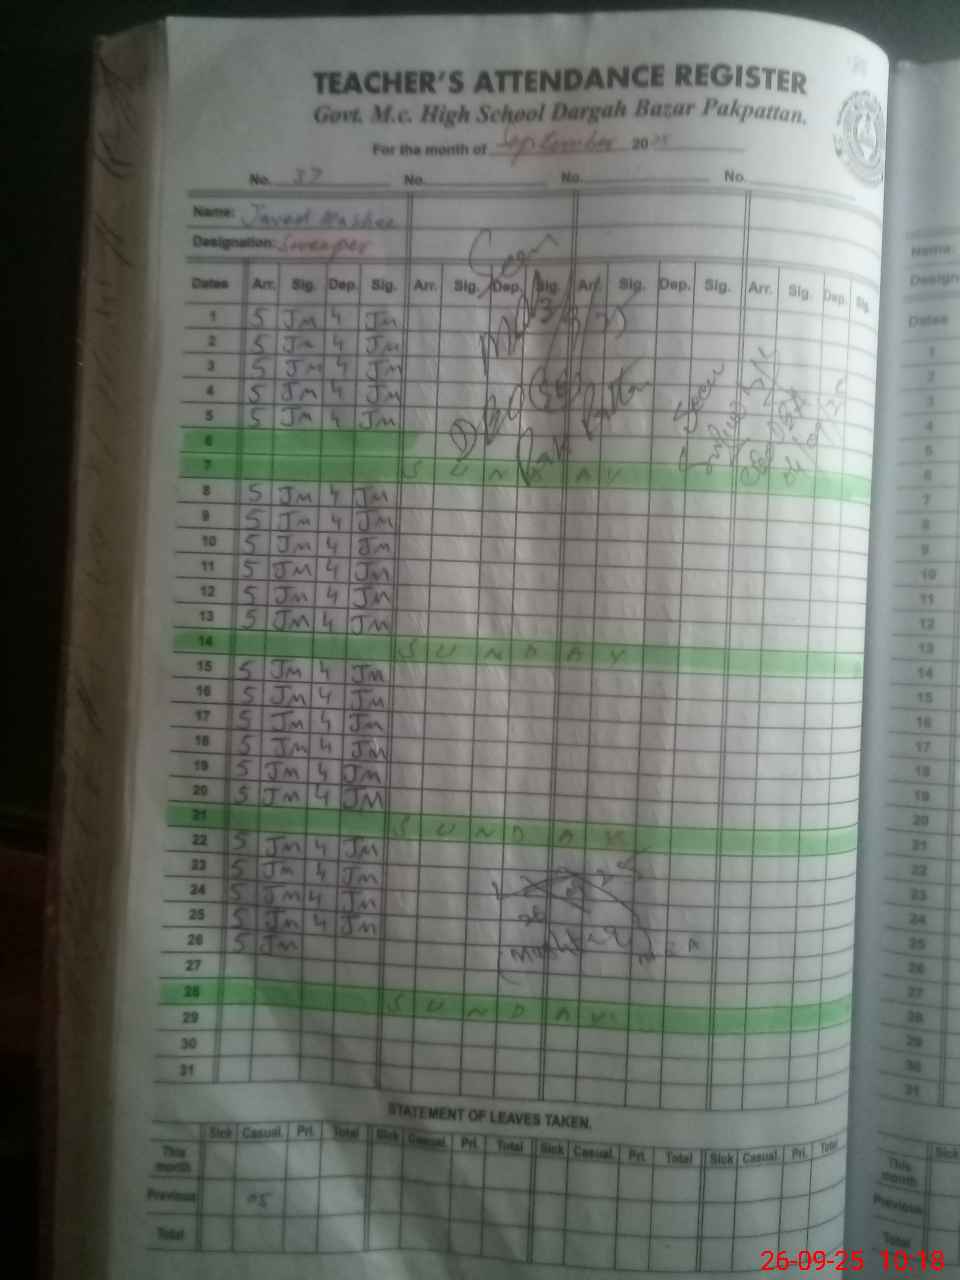 TEACHER'S ATTENDANCE REGISTER
Govt. M.c. High School Dargah Bazar Pakpattan.
For the month of September 2025
No. 37 No. No. No.
Name: Javed Mashee
Designation: Sweeper
Dates Arr. Sig. Dep. Sig. Arr. Sig. Dep. Sig. Arr. Sig. Dep. Sig. Arr. Sig. Dep. Sig.
1 5 Jm 4 Jm
2 5 Jm 4 Jm
3 5 Jm 4 Jm
4 5 Jm 4 Jm
5 5 Jm 4 Jm
6
7 S U N D A Y
8 5 Jm 4 Jm
9 5 Jm 4 Jm
10 5 Jm 4 Jm
11 5 Jm 4 Jm
12 5 Jm 4 Jm
13 5 Jm 4 Jm
14 S U N D A Y
15 5 Jm 4 Jm
16 5 Jm 4 Jm
17 5 Jm 4 Jm
18 5 Jm 4 Jm
19 5 Jm 4 Jm
20 5 Jm 4 Jm
21 S U N D A Y
22 5 Jm 4 Jm
23 5 Jm 4 Jm
24 5 Jm 4 Jm
25 5 Jm 4 Jm
26 5 Jm
27
28 S U N D A Y
29
30
31
Seen
Pak Pattan
Seen
STATEMENT OF LEAVES TAKEN.
Sick Casual Pri. Total Sick Casual Pri. Total Sick Casual Pri. Total Sick Casual Pri. Total
This month
Previous 05
Total
Name:
Dates
1
2
3
4
5
6
7
8
9
10
11
12
13
14
15
16
17
18
19
20
21
22
23
24
25
26
27
28
29
30
31
Sick
This month
Previous
Total
26-09-25 10:18